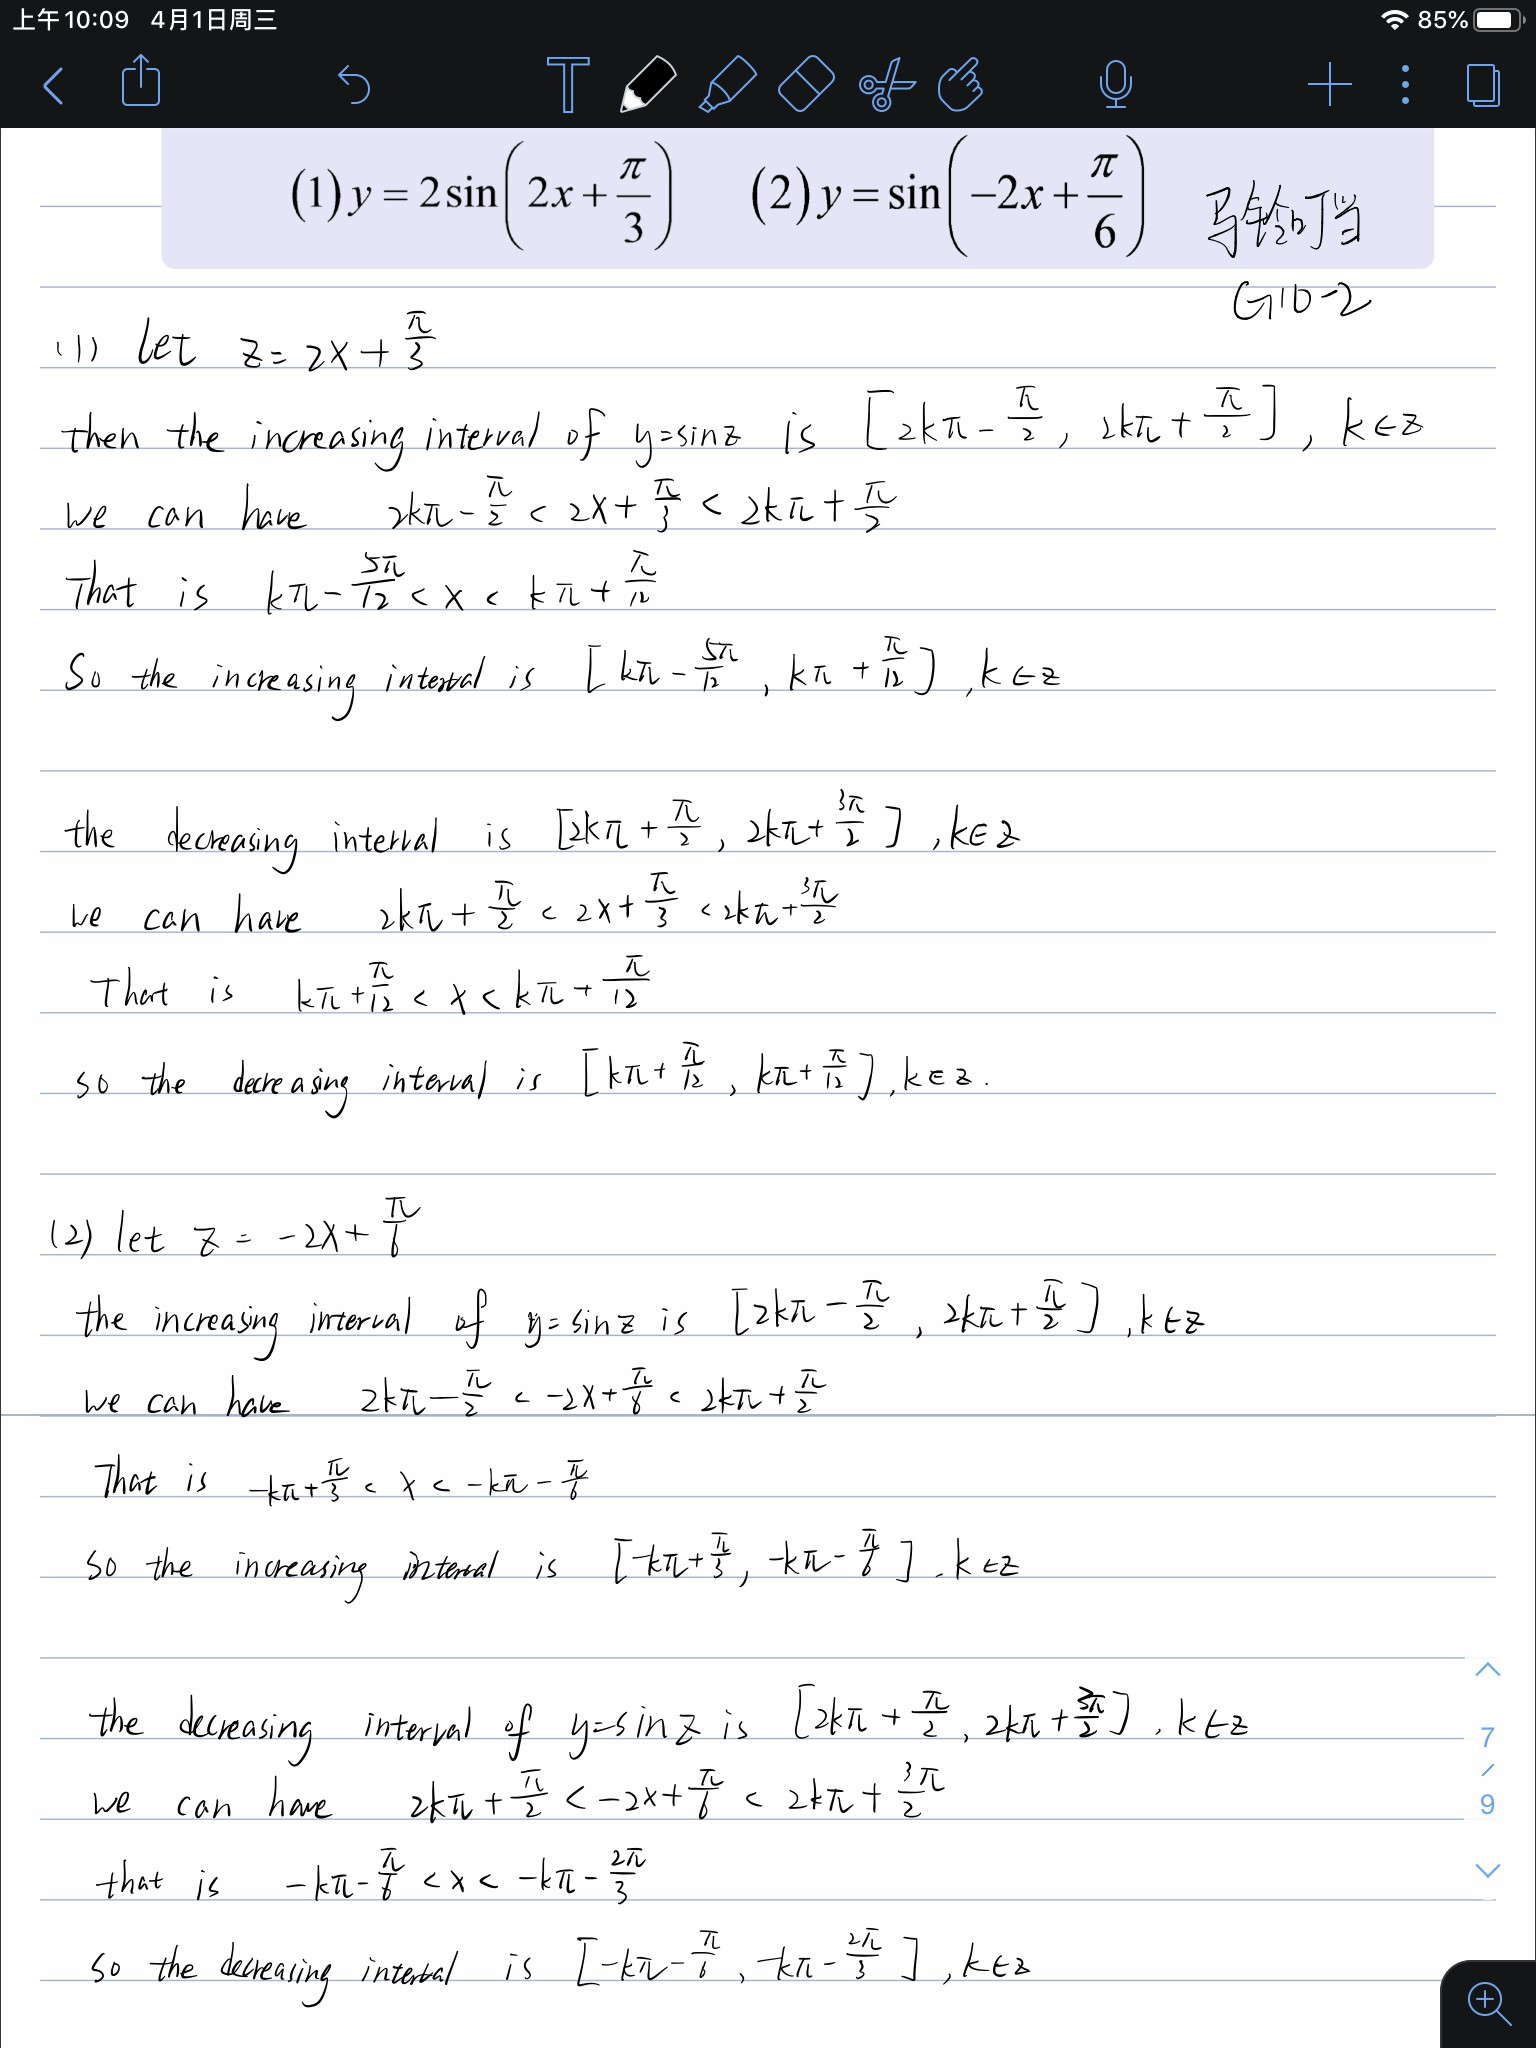 上午10:09 4月1日周三 85%
(1) y = 2sin(2x + π/3) (2) y = sin(-2x + π/6) 马铃叮当
G10-2
(1) let z = 2x + π/3
then the increasing interval of y=sinz is [2kπ - π/2, 2kπ + π/2], k∈z
we can have 2kπ - π/2 < 2x + π/3 < 2kπ + π/2
That is kπ - 5π/12 < x < kπ + π/12
So the increasing interval is [kπ - 5π/12, kπ + π/12], k∈z
the decreasing interval is [2kπ + π/2, 2kπ + 3π/2], k∈z
we can have 2kπ + π/2 < 2x + π/3 < 2kπ + 3π/2
That is kπ + π/12 < x < kπ + π/12
so the decreasing interval is [kπ + π/12, kπ + π/12], k∈z.
(2) let z = -2x + π/6
the increasing interval of y=sinz is [2kπ - π/2, 2kπ + π/2], k∈z
we can have 2kπ - π/2 < -2x + π/6 < 2kπ + π/2
That is -kπ + π/3 < x < -kπ - π/6
so the increasing interval is [-kπ + π/3, -kπ - π/6], k∈z
the decreasing interval of y=sinz is [2kπ + π/2, 2kπ + 3π/2], k∈z
7/9
we can have 2kπ + π/2 < -2x + π/6 < 2kπ + 3π/2
that is -kπ - π/6 < x < -kπ - 2π/3
so the decreasing interval is [-kπ - π/6, -kπ - 2π/3], k∈z